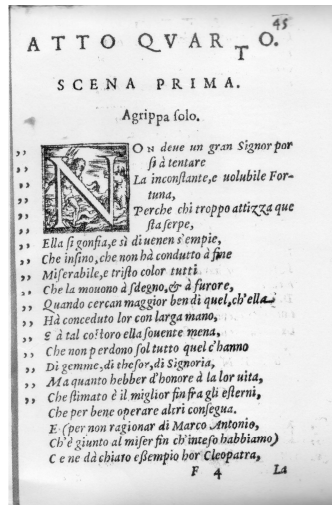 45
ATTO QVARTO.
SCENA PRIMA.
Agrippa ſolo.
NON deue un gran Signor por
ſi à tentare
La inconſtante, e uolubile For-
tuna,
Perche chi troppo attizza que
ſta ſerpe,
,, Ella ſi gonfia, e sì di uenen s'empie,
,, Che inſino, che non hà condutto à fine
,, Miſerabile, e triſto color tutti
,, Che la mouono à ſdegno, & à furore,
,, Quando cercan maggior ben di quel, ch'ella
,, Hà conceduto lor con larga mano,
,, E à tal coſtoro ella ſouente mena,
,, Che non perdono ſol tutto quel c'hanno
,, Di gemme, di theſor, di Signoria,
,, Ma quanto hebber d'honore à la lor uita,
,, Che ſtimato è il miglior fin fra gli eſterni,
Che per bene operare altri conſegua.
E (per non ragionar di Marco Antonio,
Ch'è giunto al miſer fin ch'inteſo habbiamo)
Ce ne dà chiaro eſſempio hor Cleopatra,
F 4 La